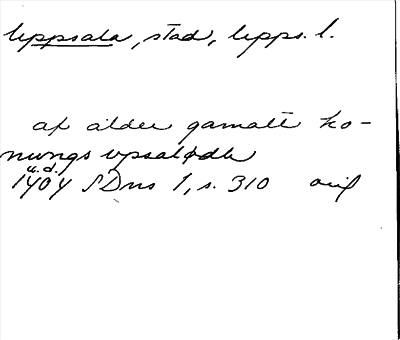 Uppsala, stad, Upps. l.
af ålder gamalt ko-
nungs upsalödh
u.d.
1404 SDns 1, s. 310 orig